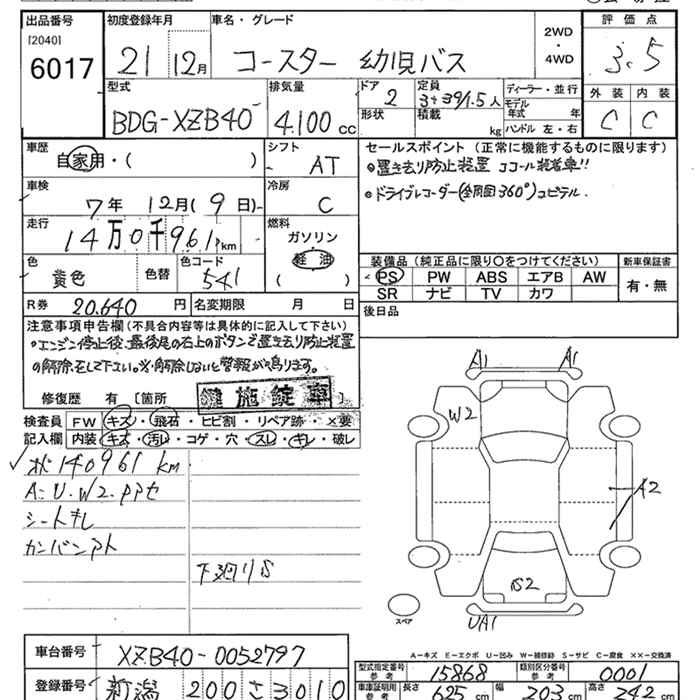 出品番号 初度登録年月 車名・グレード 評価点
[2040]
6017 21 12月 コースター 幼児バス 2WD・4WD 3.5
型式 排気量 ドア 定員 ディーラー・並行 外装 内装
BDG-XZB40 4.100cc 2 3+39/1.5人 モデル年式 年 C C
形状 積載 kg ハンドル 左・右
車歴 シフト セールスポイント (正常に機能するものに限ります)
自家用・( ) AT ◎置き去り防止装置 ココール装着車!!
車検 冷房 ◎ドライブレコーダー(全周囲360°)ユピテル.
7年 12月(9日) C
走行 燃料
14万0千961km ガソリン
軽油
( )
装備品 (純正品に限り〇をつけてください) 新車保証書
色 色替 色コード PS PW ABS エアB AW 有・無
黄色 541 SR ナビ TV カワ
R券 20.640円 名変期限 月 日 後日品
注意事項申告欄 (不具合内容等は具体的に記入して下さい)
◎エンジン停止後、最後尾の右上のボタンで置き去り防止装置
の解除をして下さい。※解除しないと警報が鳴ります。
修復歴 有 [箇所 ]
鍵施錠車
検査員 FW キズ・飛石・ヒビ割・リペア跡・×要
記入欄 内装 キズ・汚レ・コゲ・穴・スレ・キレ・破レ
状140961km
A=U.W2.PPセ
シートキレ
カンバンアト
下廻りS
A1 A1
W2
A2
B2
UA1
スペア
A―キズ E―エクボ U―凹み W―補修跡 S―サビ C―腐食 ××―交換済
車台番号 XZB40-0052797
型式指定番号 参考 15868 類別区分番号 参考 0001
登録番号 新潟 200 さ 3010
車庫証明用 参考 長さ 625cm 幅 203cm 高さ 242cm